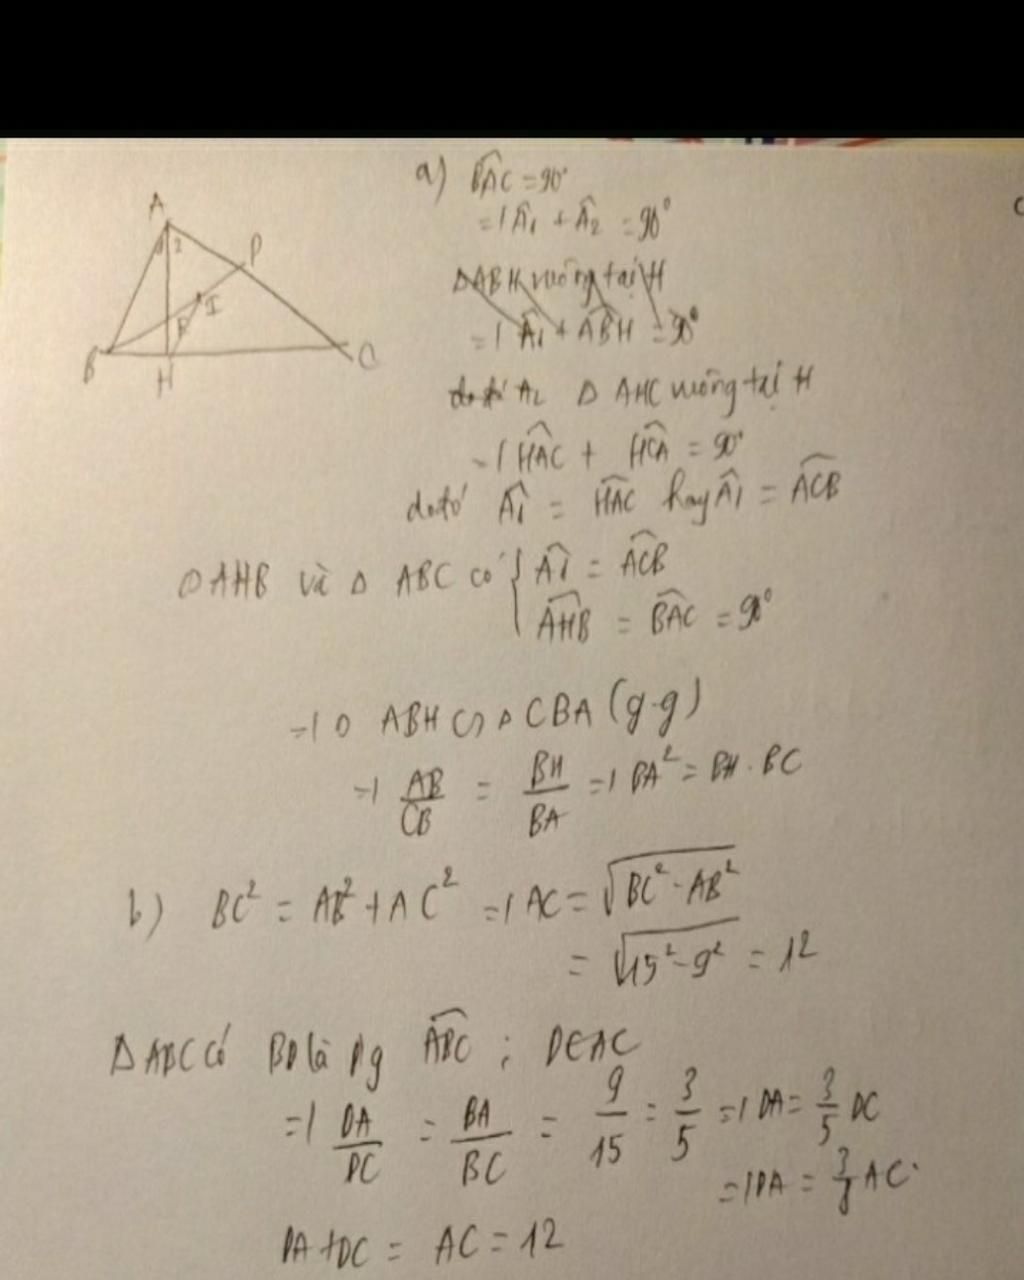 A
1 2
D
I
F
B
H
C
a) BAC = 90°
=> A1 + A2 = 90°
ΔABH vuông tại H
=> A1 + ABH = 90°
A2 Δ AHC vuông tại H
=> HAC + HCA = 90°
do đó A1 = HAC hay A1 = ACB
Δ AHB và Δ ABC có { A1 = ACB
AHB = BAC = 90°
=> Δ ABH ∽ Δ CBA (g.g)
=> AB/CB = BH/BA => BA² = BH . BC
b) BC² = AB² + AC² => AC = √(BC² - AB²)
= √(15² - 9²) = 12
ΔABC có BD là pg ABC ; D ∈ AC
=> DA/DC = BA/BC = 9/15 = 3/5 => DA = 3/5 DC
=> DA = 3/8 AC
DA + DC = AC = 12